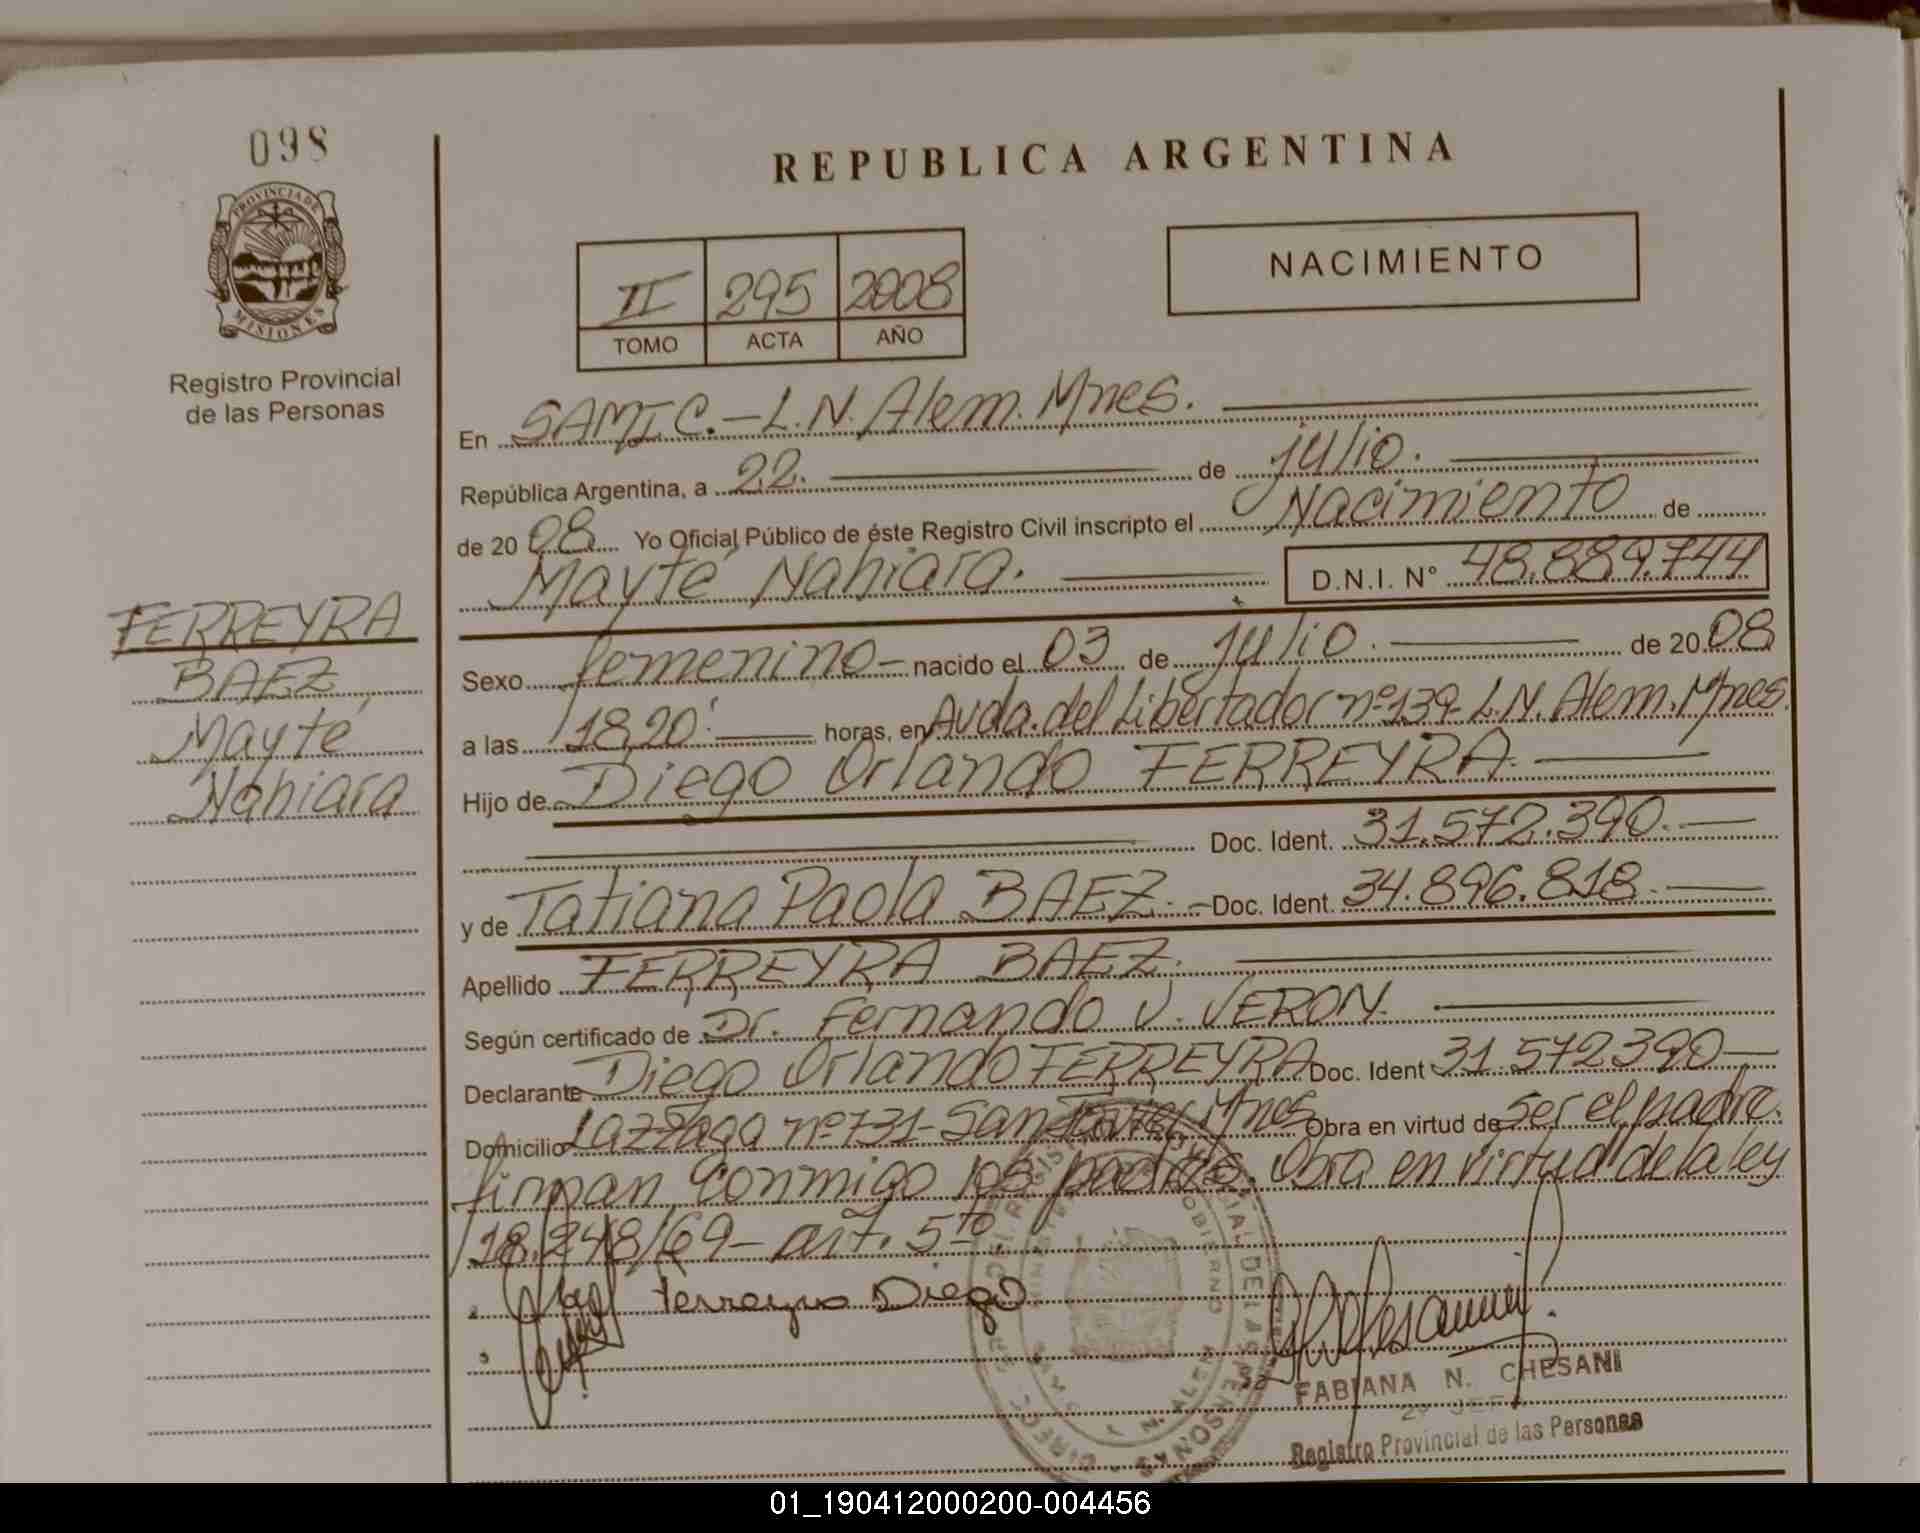 098
REPUBLICA ARGENTINA
PROVINCIA DE
MISIONES
Registro Provincial
de las Personas
II 295 2008
TOMO ACTA AÑO
NACIMIENTO
En SAMIC.-L.N. Alem. Mnes.
República Argentina, a 22. de julio.
de 2008 Yo Oficial Público de éste Registro Civil inscripto el Nacimiento de
Mayte Nahiara. D.N.I. N° 48.889.744
FERREYRA
BAEZ,
Mayte
Nahiara
Sexo femenino- nacido el 03 de julio. de 2008
a las 18,20' horas, en Avda. del Libertador nº139-L.N. Alem. Mnes.
Hijo de Diego Orlando FERREYRA.
Doc. Ident. 31.572.390.
y de Tatiana Paola BAEZ.- Doc. Ident. 34.896.818.
Apellido FERREYRA BAEZ.
Según certificado de Dr. Fernando J. VERON.
Declarante Diego Orlando FERREYRA Doc. Ident 31.572.390
Domicilio nº731-San Javier, Mnes Obra en virtud de ser el padre.
firman conmigo los padres. Obra en virtud de la ley
18.248/69- art. 5to.
Ferreyra Diego
FABIANA N. CHESANI
2º JEFE
Registro Provincial de las Personas
01_190412000200-004456